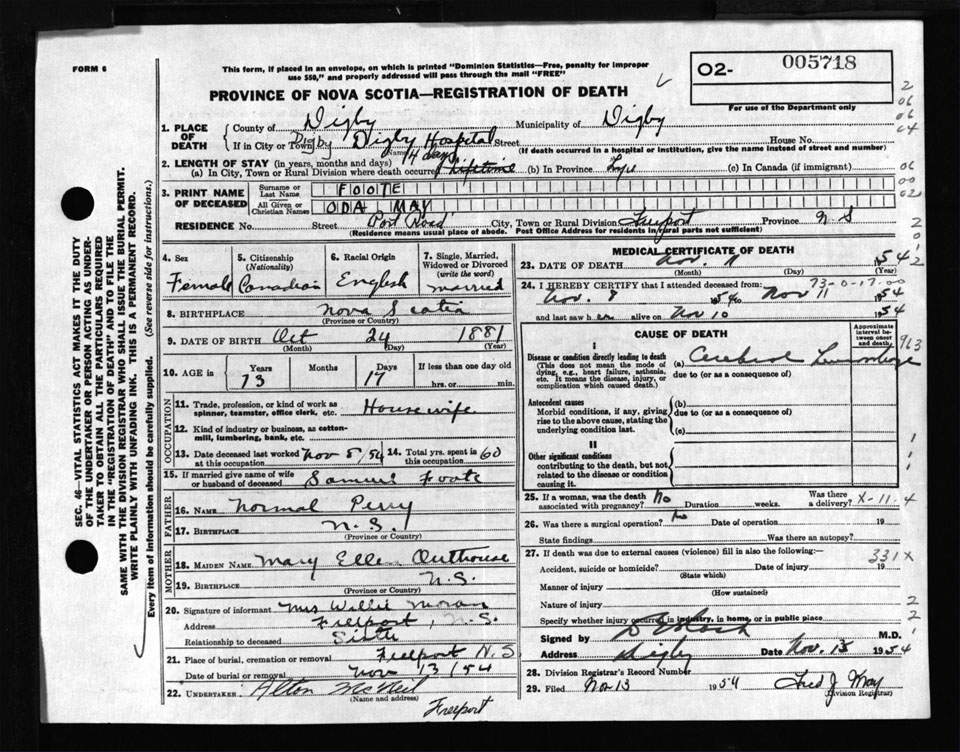 FORM 6
This form, if placed in an envelope, on which is printed "Dominion Statistics—Free, penalty for improper
use $50," and properly addressed will pass through the mail "FREE"
PROVINCE OF NOVA SCOTIA—REGISTRATION OF DEATH
O2- 005718
For use of the Department only
1. PLACE OF DEATH
County of Digby Municipality of Digby
If in City or Town Digby Digby Hospital Street House No.
(Name) (If death occurred in a hospital or institution, give the name instead of street and number)
2. LENGTH OF STAY (in years, months and days) 4 days
(a) In City, Town or Rural Division where death occurred lifetime (b) In Province (c) In Canada (if immigrant)
3. PRINT NAME OF DECEASED
Surname or Last Name FOOTE
All Given or Christian Names ODA MAY
RESIDENCE No. Street Port Road City, Town or Rural Division Freeport Province N S
(Residence means usual place of abode. Post Office Address for residents in rural parts not sufficient)
4. Sex Female
5. Citizenship (Nationality) Canadian
6. Racial Origin English
7. Single, Married, Widowed or Divorced (write the word) married
8. BIRTHPLACE Nova Scotia
(Province or Country)
9. DATE OF BIRTH Oct 24 1881
(Month) (Day) (Year)
10. AGE in Years 73 Months Days 17 If less than one day old hrs. or min.
OCCUPATION
11. Trade, profession, or kind of work as spinner, teamster, office clerk, etc. Housewife
12. Kind of industry or business, as cotton-mill, lumbering, bank, etc.
13. Date deceased last worked at this occupation Nov 8/54 14. Total yrs. spent in this occupation 60
15. If married give name of wife or husband of deceased Samuel Foote
FATHER
16. Name Normal Perry
17. Birthplace N.S.
(Province or Country)
MOTHER
18. MAIDEN NAME Mary Ellen Outhouse
19. BIRTHPLACE N.S.
(Province or Country)
20. Signature of informant Mrs Willie Moran
Address Freeport, N.S.
Relationship to deceased Sister
21. Place of burial, cremation or removal Freeport N.S.
Date of burial or removal Nov 13/54
22. UNDERTAKER Alton McNeil
(Name and address)
Freeport
MEDICAL CERTIFICATE OF DEATH
23. DATE OF DEATH Nov. 11 1954
(Month) (Day) (Year)
73-0-17-00
24. I HEREBY CERTIFY that I attended deceased from:
Nov. 8 1954 to Nov 11 1954
and last saw her alive on Nov 10 1954
CAUSE OF DEATH
Approximate interval between onset and death
I
Disease or condition directly leading to death
(This does not mean the mode of dying, e.g., heart failure, asthenia, etc. It means the disease, injury, or complication which caused death.)
(a) Cerebral
due to (or as a consequence of)
963
Antecedent causes
Morbid conditions, if any, giving rise to the above cause, stating the underlying condition last.
(b)
due to (or as a consequence of)
(c)
II
Other significant conditions
contributing to the death, but not related to the disease or condition causing it.
25. If a woman, was the death associated with pregnancy? No Duration weeks. Was there a delivery? X-11-4
26. Was there a surgical operation? No Date of operation 19
State findings Was there an autopsy?
27. If death was due to external causes (violence) fill in also the following:— 331X
Accident, suicide or homicide? Date of injury 19
(State which)
Manner of injury
(How sustained)
Nature of injury
Specify whether injury occurred in industry, in home, or in public place
Signed by M.D.
Address Digby Date Nov. 15 1954
28. Division Registrar's Record Number
29. Filed Nov 15 1954 Fred J. May
(Division Registrar)
SEC. 46—VITAL STATISTICS ACT MAKES IT THE DUTY
OF THE UNDERTAKER OR PERSON ACTING AS UNDER-
TAKER TO OBTAIN ALL THE PARTICULARS REQUIRED
IN THE "REGISTRATION OF DEATH" AND TO FILE THE
SAME WITH THE DIVISION REGISTRAR WHO SHALL ISSUE THE BURIAL PERMIT.
WRITE PLAINLY WITH UNFADING INK. THIS IS A PERMANENT RECORD.
Every item of information should be carefully supplied. (See reverse side for instructions.)